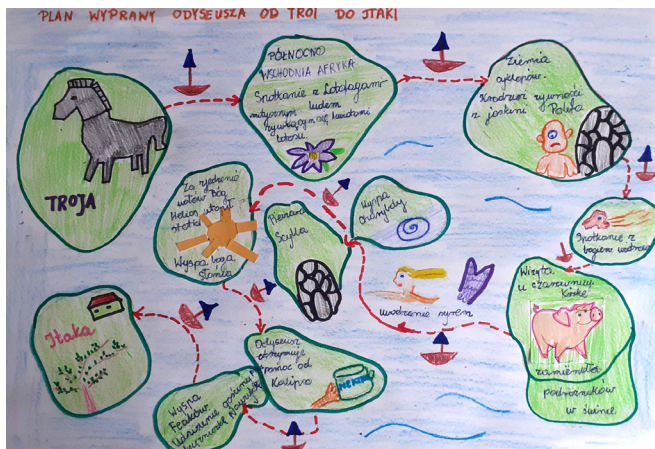 PLAN WYPRAWY ODYSEUSZA OD TROI DO JTAKI
TROJA
PÓŁNOCNO
WSCHODNIA AFRYKA
Spotkanie z Lotofagami
mitycznym ludem
żywiącym się kwiatami
lotosu.
Ziemia
cyklopów.
Kradzież żywności
z jaskini Polifa
Spotkanie z
bogiem wiatrów
Wizyta
u czarownicy
Kirke
zamieniła
podróżników
w świnie
uwodzenie syren
Wyspa
Charybdy
Pieczara
Scylla
Za zjedzenie
wołów bóg
Helios utopił
statki
Wyspa boga
Słońca
Odyseusz
otrzymuje
pomoc od
Kalipso
NEKTAR
Wyspa
Feaków
Udzielenie gościny
Jtaka